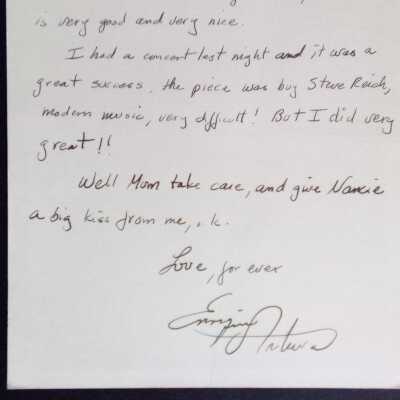 is very good and very nice.
I had a concert last night and it was a
great success. the piece was buy Steve Reich,
modern music, very difficult! But I did very
great!!
Well Mom take care, and give Nancie
a big kiss from me, . k.
Love, for ever